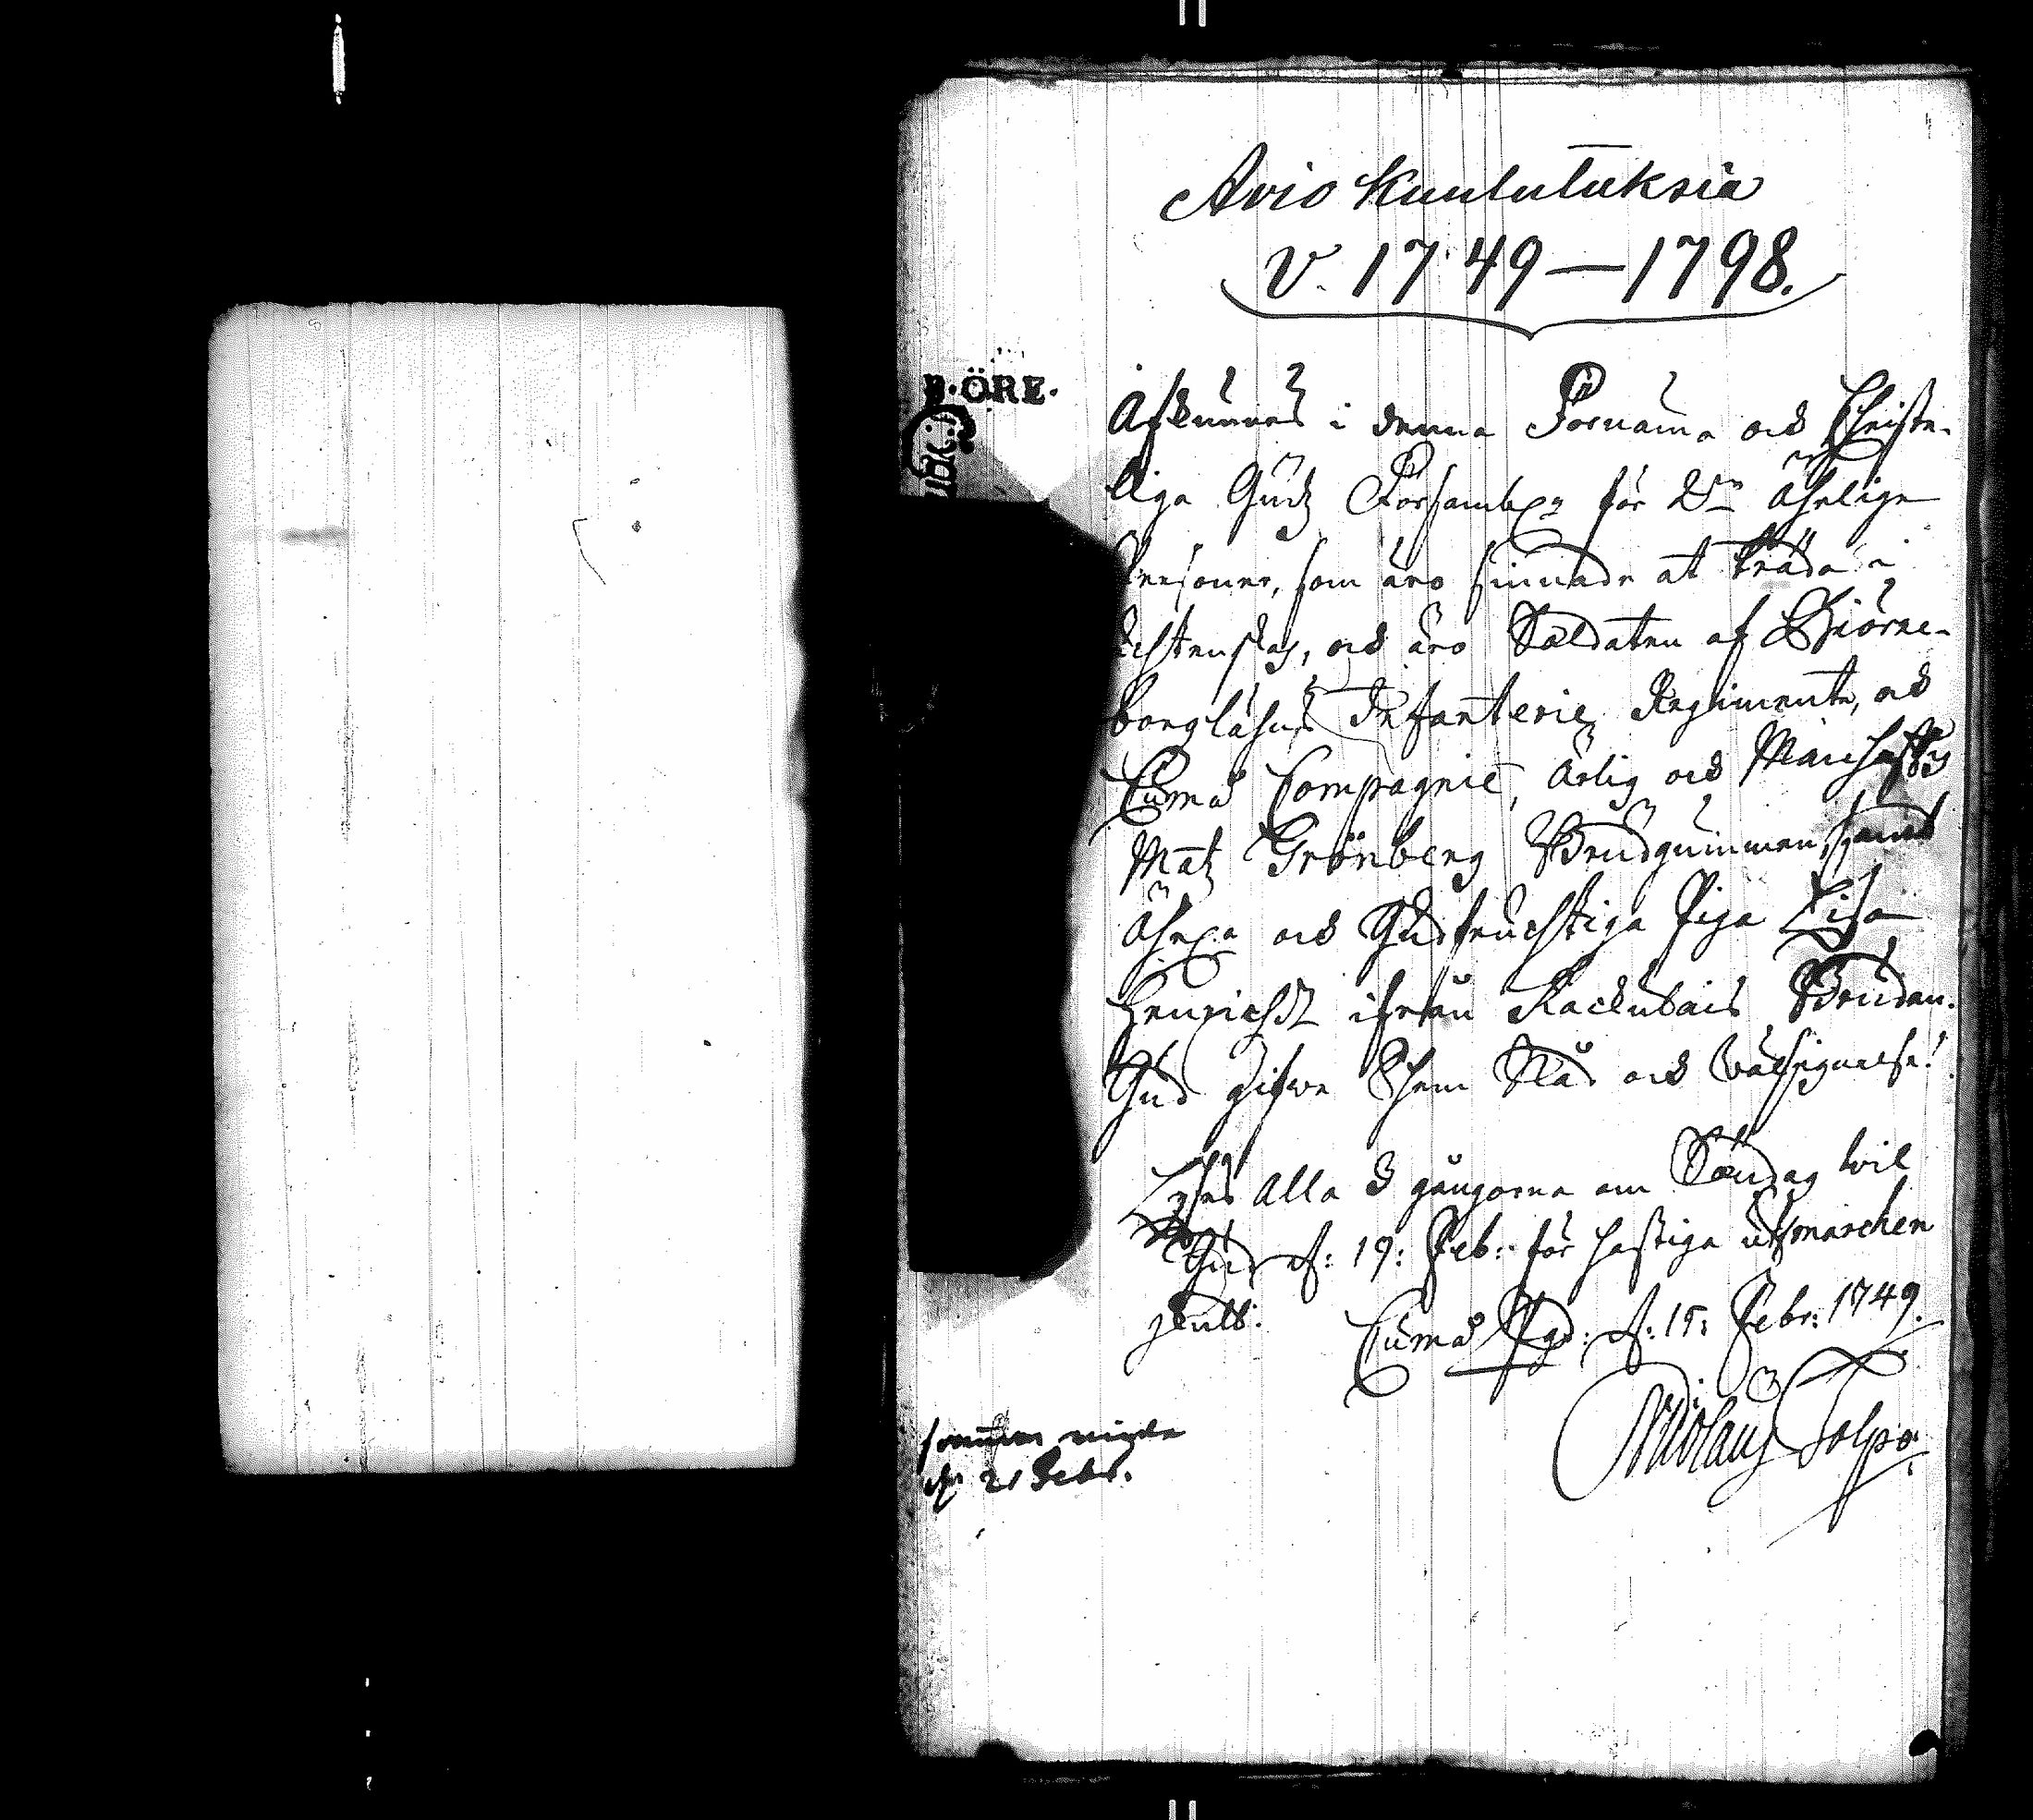 Avio kuulutuksia
v. 1749—1798.
ÖRE.
Afkunnes i denna Förnäma och Christe-
liga Gudz Församl: för 2:ne Ährliga
Personer, som äro sinnade at träda i
Ächtenskap, och äro Soldaten af Biörne-
borgs Lähns Infanterie Regimente, och
Cumå Compagnie, Ärlig och Manhaftig
Matz Grönberg Brudgummen, samt
Ähr: och Gudfruchtiga Piga Lisa
Henrichsd: ifrån Bruden.
Gud gifwe Them Nåd och Wälsignelse!
Lyses alla 3 gångorna om Söndag wil
Gud d: 19: Feb: för hastiga utmarchen
skull. Cumå Pgd: d: 15: Febr: 1749.
Nicolaus Polpo.
d. 21 Febr.